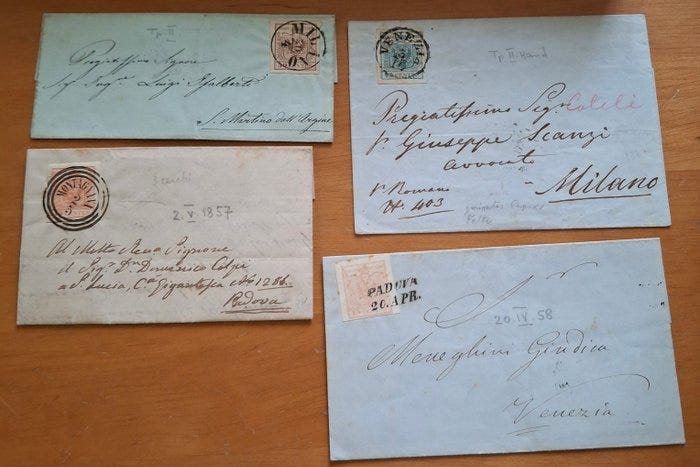 Tp II
MILANO
Pregiatissimo Signore
Luigi
S. Martino dall' Argine
VENEZIA
Tp II Hand
Pregiatissimo Sig.
Giuseppe Scanzi
avvocato
Milano
Nº 403
MONTAGNANA
3 cerchi
2.V.1857
Al Molto Rev. Signore
Il Sig. Dn Domenico Colpi
a S. Lucia, Cª Gigantesca Nº 1286
Padova
PADOVA
20.APR.
20.IV.58
A
Meneghini Giudica
Venezia